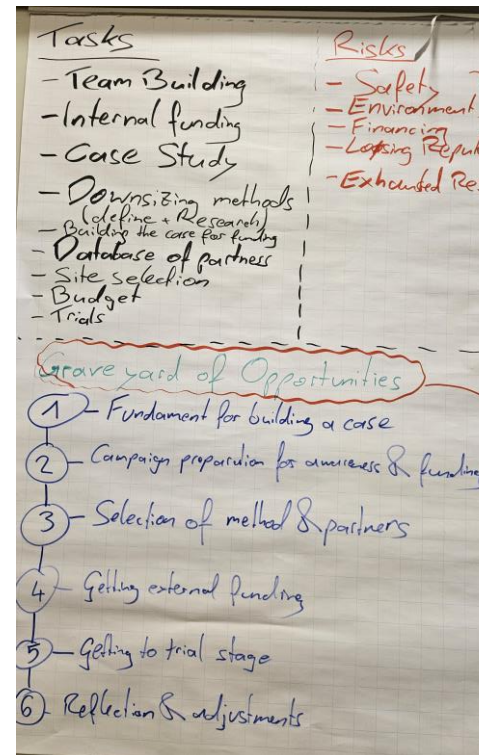 Tasks
- Team Building
- Internal funding
- Case Study
- Downsizing methods
(define + Research)
- Building the case for funding
- Database of partness
- Site selection
- Budget
- Trials
Risks
- Safety
- Environment
- Financing
- Loosing Reput
- Exhausted Res
Graveyard of Opportunities
1 - Fundament for building a case
2 - Campaign preparation for awareness & funding
3 - Selection of method & partners
4 - Getting external funding
5 - Getting to trial stage
6 - Reflection & adjustments